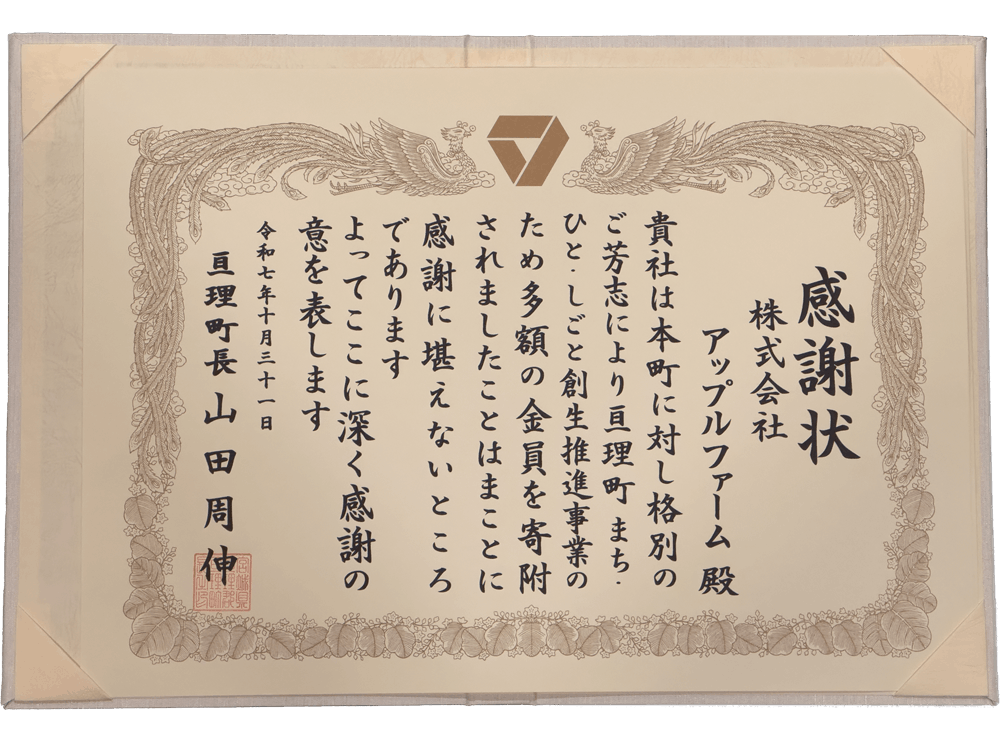 感謝状
株式会社
アップルファーム 殿
貴社は本町に対し格別の
ご芳志により亘理町まち・
ひと・しごと創生推進事業の
ため多額の金員を寄附
されましたことはまことに
感謝に堪えないところ
であります
よってここに深く感謝の
意を表します
令和七年十月三十一日
亘理町長 山田周伸